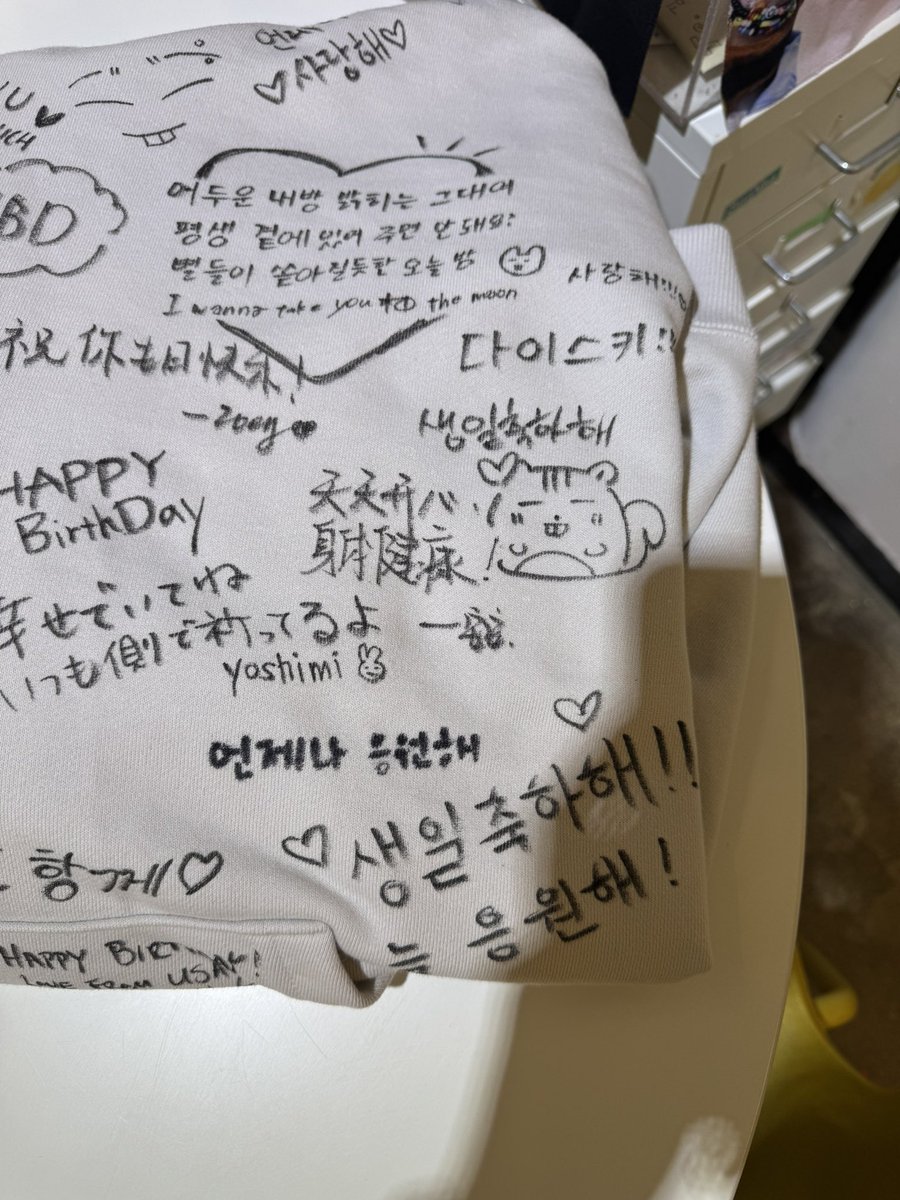 사랑해
어두운 내방 밝히는 그대여
평생 곁에 있어 주면 안 돼요?
별들이 쏟아질듯한 오늘 밤
I wanna take you to the moon
사랑해!!
祝你生日快乐!
다이스키!!
-zoey
생일축하해
HAPPY
BirthDay
天天开心!
身体健康!
幸せでいてね
いつも側で祈ってるよ
yoshimi
언제나 응원해
생일축하해!!
응원해!
함께
HAPPY
LOVE FROM USA!